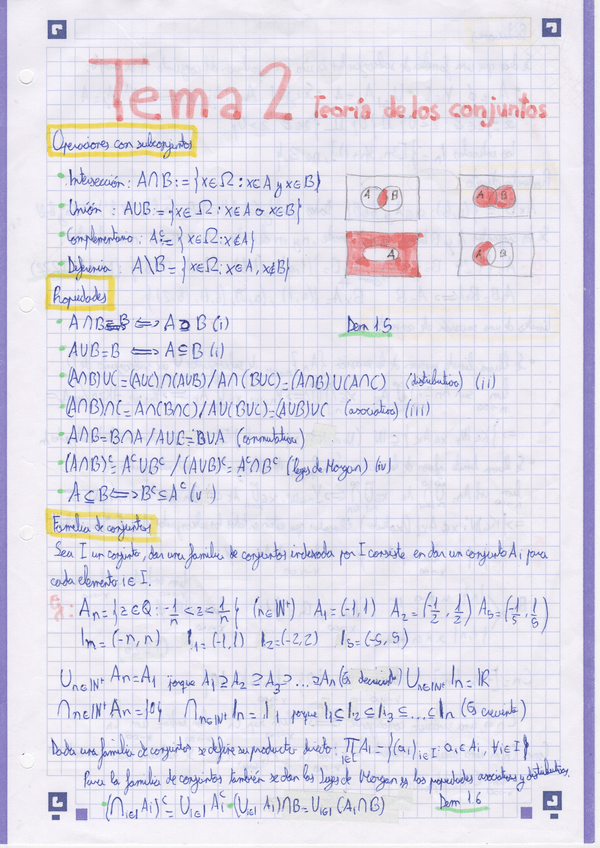 Tema 2 Teoría de los conjuntos
Operaciones con subconjuntos
• Intersección: A∩B:={x∈Ω: x∈A y x∈B}
• Unión: A∪B:={x∈Ω: x∈A o x∈B}
A B
A B
• Complementario: Aᶜ:={x∈Ω: x∉A}
• Diferencia: A\B={x∈Ω: x∈A, x∉B}
A
A B
Propiedades
• A∩B=B ⟺ A⊇B (i)
Dem 1.5
• A∪B=B ⟺ A⊆B (i)
• (A∩B)∪C=(A∪C)∩(A∪B)/A∩(B∪C)=(A∩B)∪(A∩C) (distributiva) (ii)
• (A∩B)∩C=A∩(B∩C)/A∪(B∪C)=(A∪B)∪C (asociativa) (iii)
• A∩B=B∩A/A∪B=B∪A (conmutativa)
• (A∩B)ᶜ=Aᶜ∪Bᶜ/(A∪B)ᶜ=Aᶜ∩Bᶜ (leyes de Morgan) (iv)
• A⊆B⟺Bᶜ⊆Aᶜ (v)
Familia de conjuntos
Sea I un conjunto, dar una familia de conjuntos indexada por I consiste en dar un conjunto Ai para
cada elemento i∈I.
Ej: An={z∈Q: -1/n<z<1/n} (n∈ℕ⁺) A1=(-1,1) A2=(-1/2, 1/2) A5=(-1/5, 1/5)
Im=(-n,n) I1=(-1,1) I2=(-2,2) I5=(-5,5)
∪n∈ℕ⁺ An=A1 porque A1⊇A2⊇A3⊇...⊇An (Es decreciente) ∪n∈ℕ⁺ In=ℝ
∩n∈ℕ⁺ An={0} ∩n∈ℕ⁺ In=I1 porque I1⊆I2⊆I3⊆...⊆In (Es creciente)
Dada una familia de conjuntos se define su producto directo: ∏i∈I Ai={(ai)i∈I: ai∈Ai, ∀i∈I}
Para la familia de conjuntos también se dan las leyes de Morgan y las propiedades asociativas y distributivas.
• (∩i∈I Ai)ᶜ=∪i∈I Aiᶜ • (∪i∈I Ai)∩B=∪i∈I (Ai∩B)
Dem 1.6